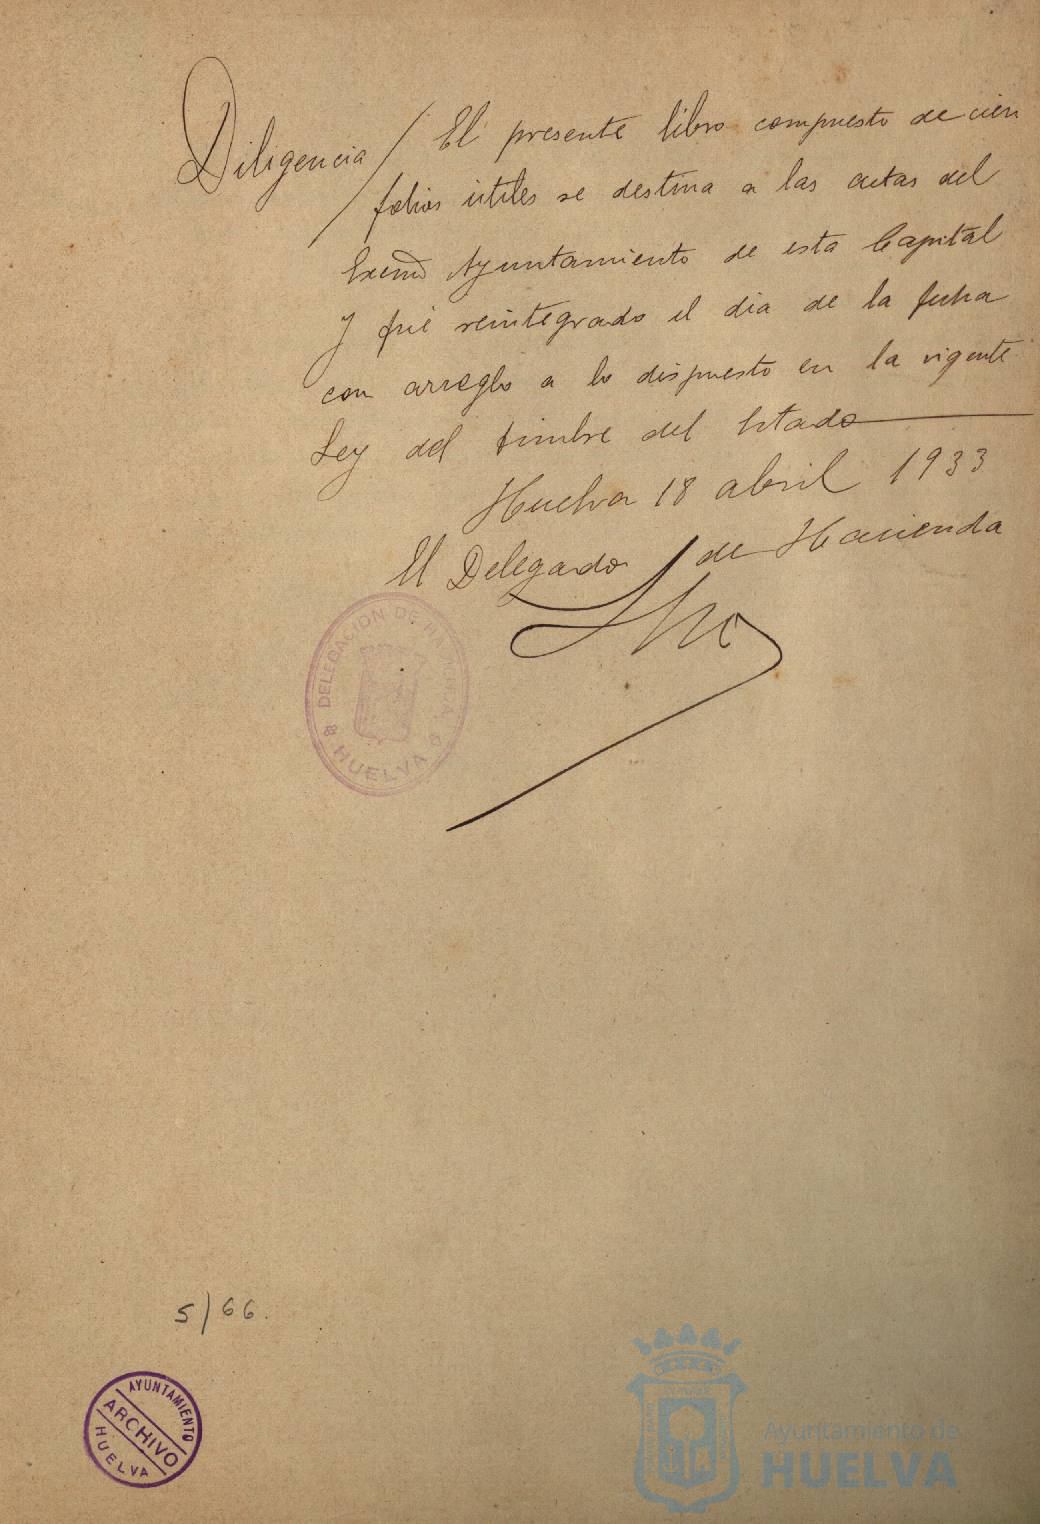 Diligencia / El presente libro compuesto de cien
folios útiles se destina a las actas del
Excmo Ayuntamiento de esta Capital
y fué reintegrado el dia de la fecha
con arreglo a lo dispuesto en la vigente
Ley del timbre del Estado
Huelva 18 abril 1933
El Delegado de Hacienda
DELEGACION DE HACIENDA
HUELVA
5/66.
AYUNTAMIENTO
ARCHIVO
HUELVA
Ayuntamiento de
HUELVA